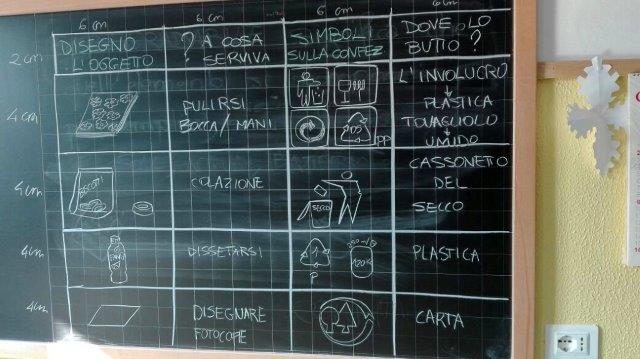 6 cm
6 cm
6 cm
6 cm
2 cm
DISEGNO
L'OGGETTO
? A COSA
SERVIVA
SIMBOLI
SULLA CONFEZ
DOVE LO
BUTTO ?
4 cm
PULIRSI
BOCCA/MANI
PP
L'INVOLUCRO
PLASTICA
TOVAGLIOLO
UMIDO
4 cm
BISCOTTI
COLAZIONE
SECCO
CASSONETTO
DEL
SECCO
4 cm
DISSETARSI
1
P
PLASTICA
4 cm
DISEGNARE
FOTOCOPIE
CARTA